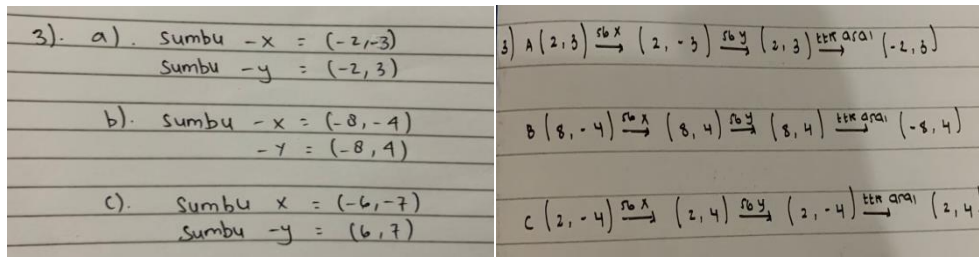 3). a). Sumbu -x = (-2,-3)
Sumbu -y = (-2, 3)
b). Sumbu -x = (-8,-4)
-Y = (-8,4)
c). Sumbu x = (-6,-7)
Sumbu -y = (6,7)
3) A (2,3) sb x → (2,-3) sb y → (2,3) ttk asal → (-2,3)
B (8,-4) sb x → (8,4) sb y → (8,4) ttk asal → (-8,4)
C (2,-4) sb x → (2,4) sb y → (2,-4) ttk asal → (2,4